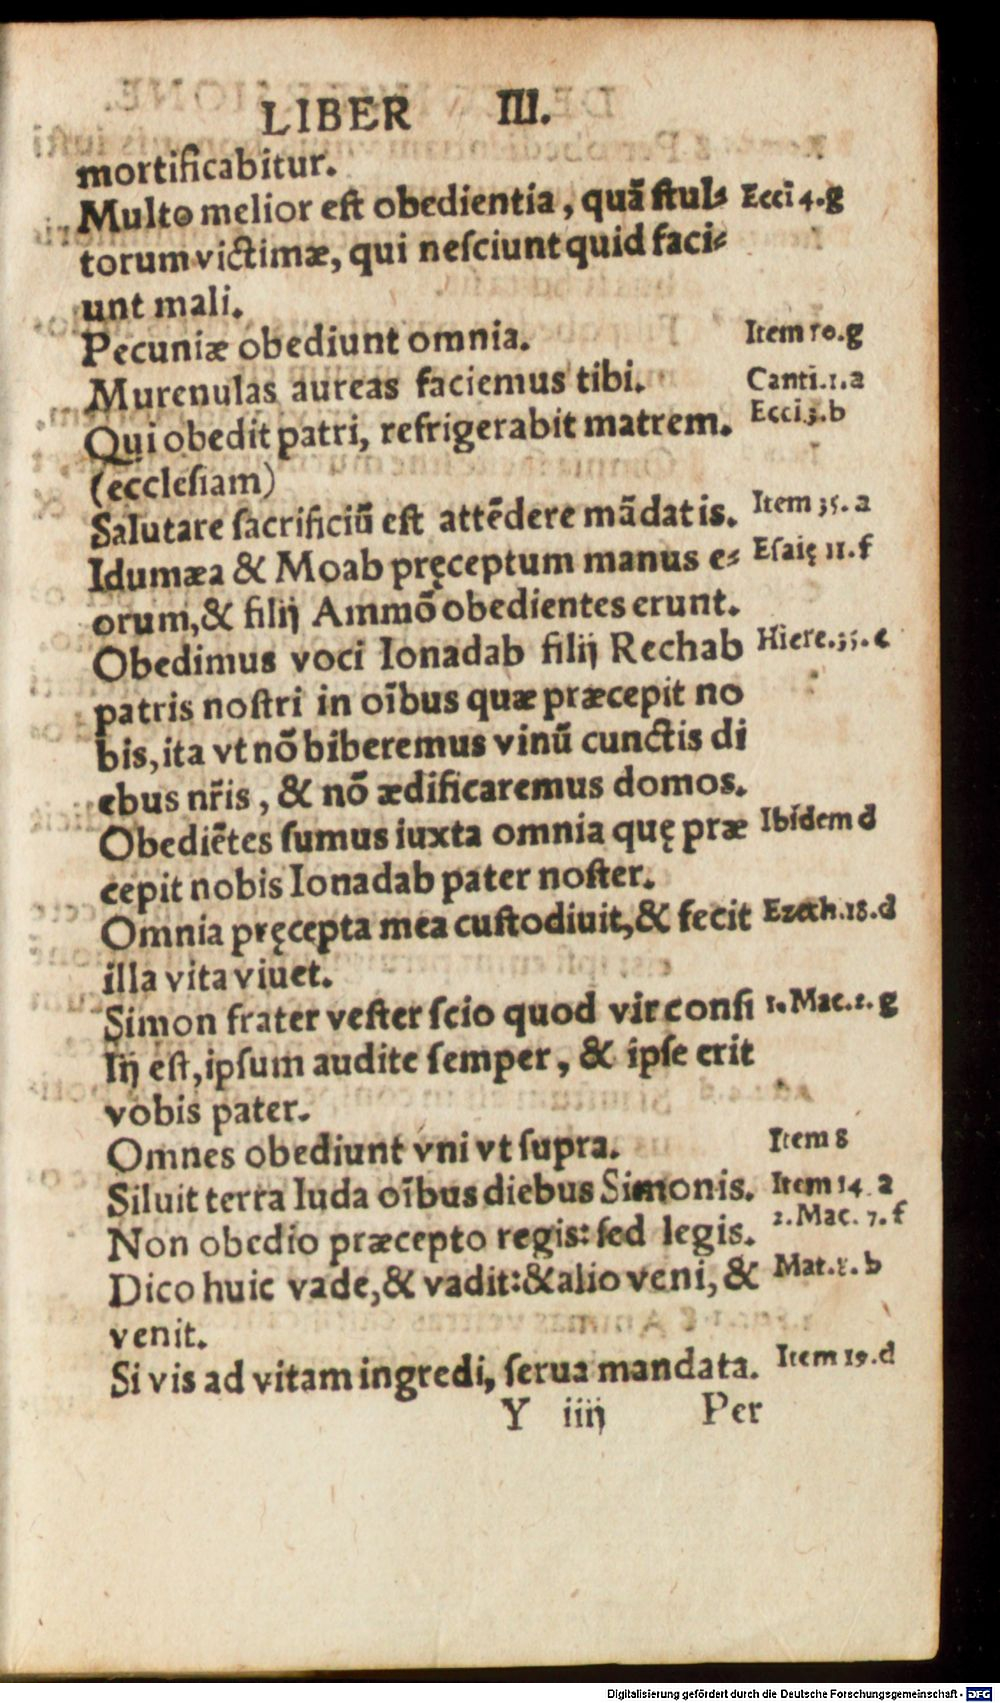 LIBER III.
mortificabitur.
Multo melior eſt obedientia, quã ſtul⸗ Ecci 4.g
torum victimæ, qui neſciunt quid faci⸗
unt mali.
Pecuniæ obediunt omnia. Item 10.g
Murenulas aureas faciemus tibi. Canti.1.a
Qui obedit patri, refrigerabit matrem. Ecci.3.b
(eccleſiam)
Salutare ſacrificiũ eſt attẽdere mãdatis. Item 35. a
Idumæa & Moab pręceptum manus e⸗ Eſaię 11.f
orum, & filij Ammõ obedientes erunt.
Obedimus voci Ionadab filij Rechab Hiere.35.c
patris noſtri in oĩbus quæ præcepit no
bis, ita vt nõ biberemus vinũ cunctis di
ebus nr̃is, & nõ ædificaremus domos.
Obediẽtes ſumus iuxta omnia quę præ Ibidem d
cepit nobis Ionadab pater noſter.
Omnia pręcepta mea cuſtodiuit, & fecit Ezech.18.d
illa vita viuet.
Simon frater veſter ſcio quod vir conſi 1. Mac.2. g
lij eſt, ipſum audite ſemper, & ipſe erit
vobis pater.
Omnes obediunt vni vt ſupra. Item 8
Siluit terra Iuda oĩbus diebus Simonis. Item 14. a
Non obedio præcepto regis: ſed legis. 2.Mac. 7. f
Dico huic vade, & vadit: & alio veni, & Mat.8. b
venit.
Si vis ad vitam ingredi, ſerua mandata. Item 19.d
Y iiij Per
Digitalisierung gefördert durch die Deutsche Forschungsgemeinschaft - DFG